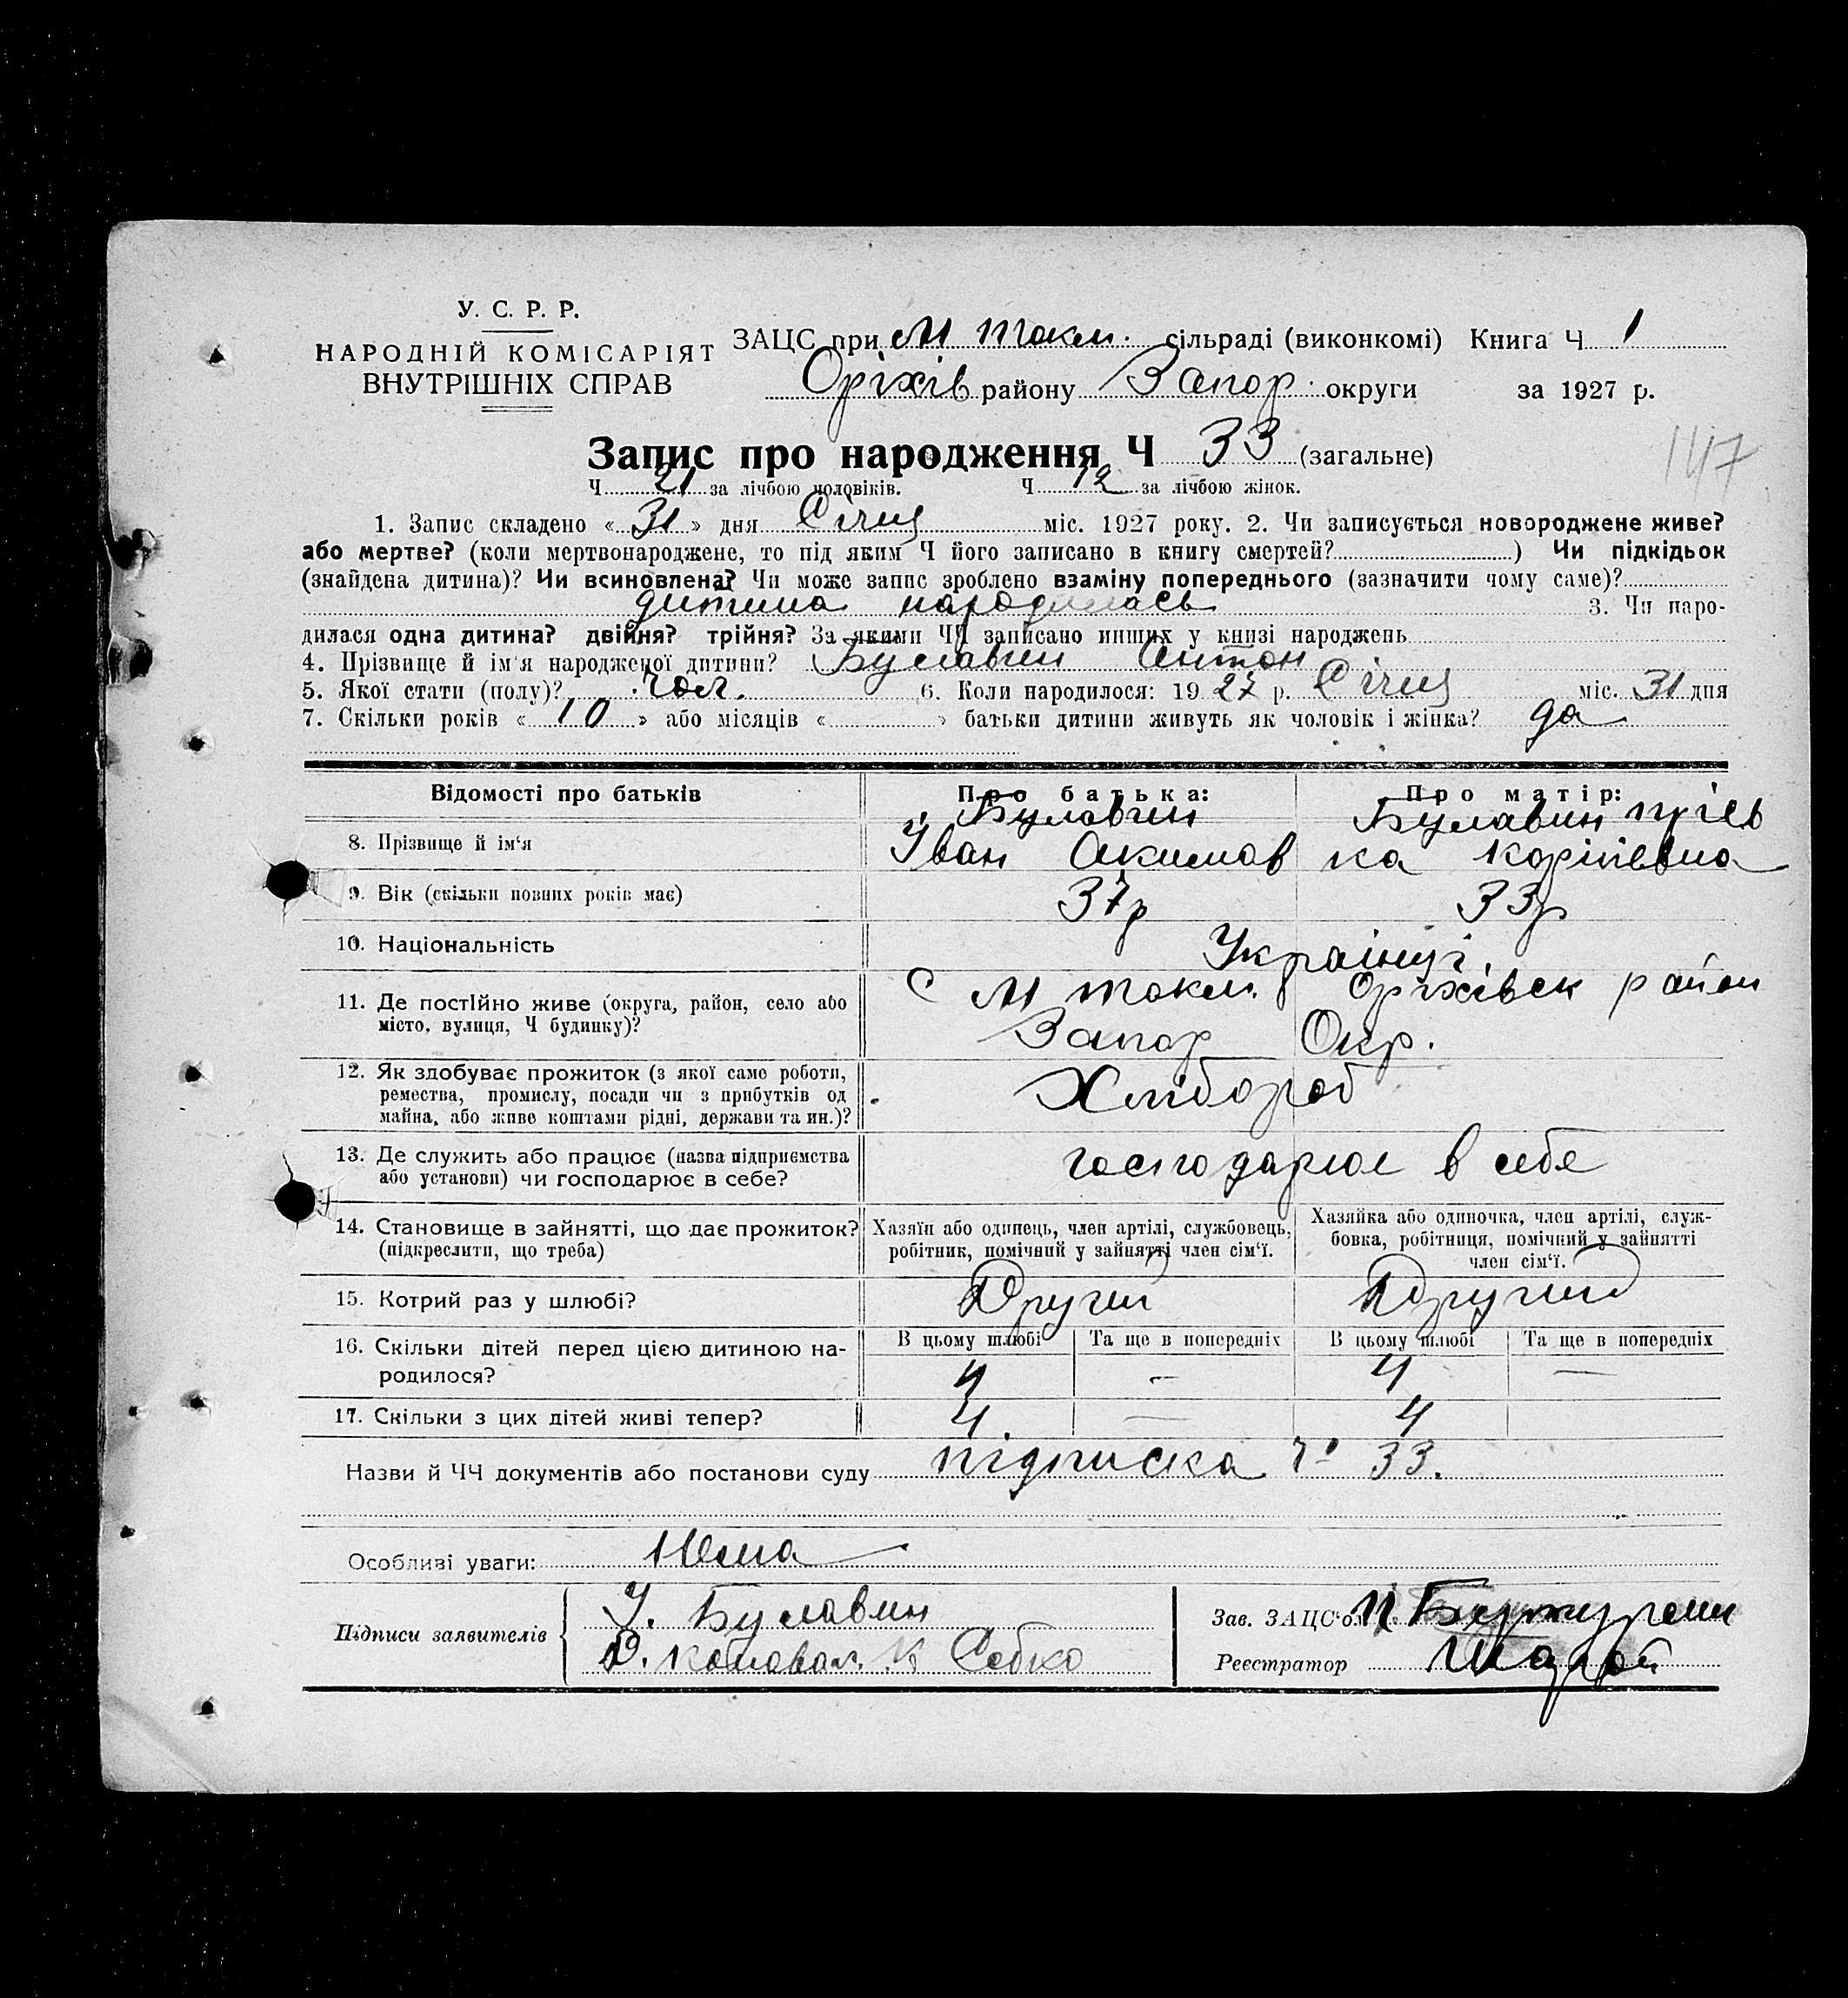 У. С. Р. Р.
НАРОДНІЙ КОМІСАРІЯТ
ВНУТРІШНІХ СПРАВ
ЗАЦС при М Токм. сільраді (виконкомі) Книга Ч 1
Оріхів району Запор. округи за 1927 р.
147
Запис про народження Ч 33 (загальне)
Ч 21 за лічбою чоловіків. Ч 12 за лічбою жінок.
1. Запис складено « 31 » дня Січня міс. 1927 року. 2. Чи записується новороджене живе?
або мертве? (коли мертвонароджене, то під яким Ч його записано в книгу смертей? ) Чи підкідьок
(знайдена дитина)? Чи всиновлена? Чи може запис зроблено взаміну попереднього (зазначити чому саме)?
дитина народилась 3. Чи наро-
дилася одна дитина? двійня? трійня? За якими ЧЧ записано инших у книзі народжень
4. Прізвище й ім'я народженої дитини? Булавин Антон
5. Якої стати (полу)? чол. 6. Коли народилося: 1927 р. Січня міс. 31 дня
7. Скільки років « 10 » або місяців « » батьки дитини живуть як чоловік і жінка? да
Відомості про батьків Про батька: Про матір:
Булавин Булавин
8. Прізвище й ім'я Іван Акимов ка
9. Вік (скільки повних років має) 37р 33р
10. Національність Українці
11. Де постійно живе (округа, район, село або С М Токм. Оріхівск район
місто, вулиця, Ч будинку)? Запор Окр.
12. Як здобуває прожиток (з якої саме роботи, Хлібороб
ремества, промислу, посади чи з прибутків од
майна, або живе коштами рідні, держави та ин.)?
13. Де служить або працює (назва підприємства господарює в себе
або установи) чи господарює в себе?
14. Становище в зайнятті, що дає прожиток? Хазяїн або одинець, член артілі, службовець, Хазяйка або одиночка, член артілі, служ-
(підкреслити, що треба) робітник, помічний у зайнятті член сім'ї. бовка, робітниця, помічний у зайнятті
член сім'ї.
15. Котрий раз у шлюбі? Другий Другий
16. Скільки дітей перед цією дитиною на- В цьому шлюбі Та ще в попередніх В цьому шлюбі Та ще в попередніх
родилося? 4 — 4 —
17. Скільки з цих дітей живі тепер? 4. — 4
Назви й ЧЧ документів або постанови суду підписка Ч° 33.
Особливі уваги: Нема
Підписи заявителів У. Булавин
Д. Коновал. К Собко
Зав. ЗАЦС'ом
Реєстратор